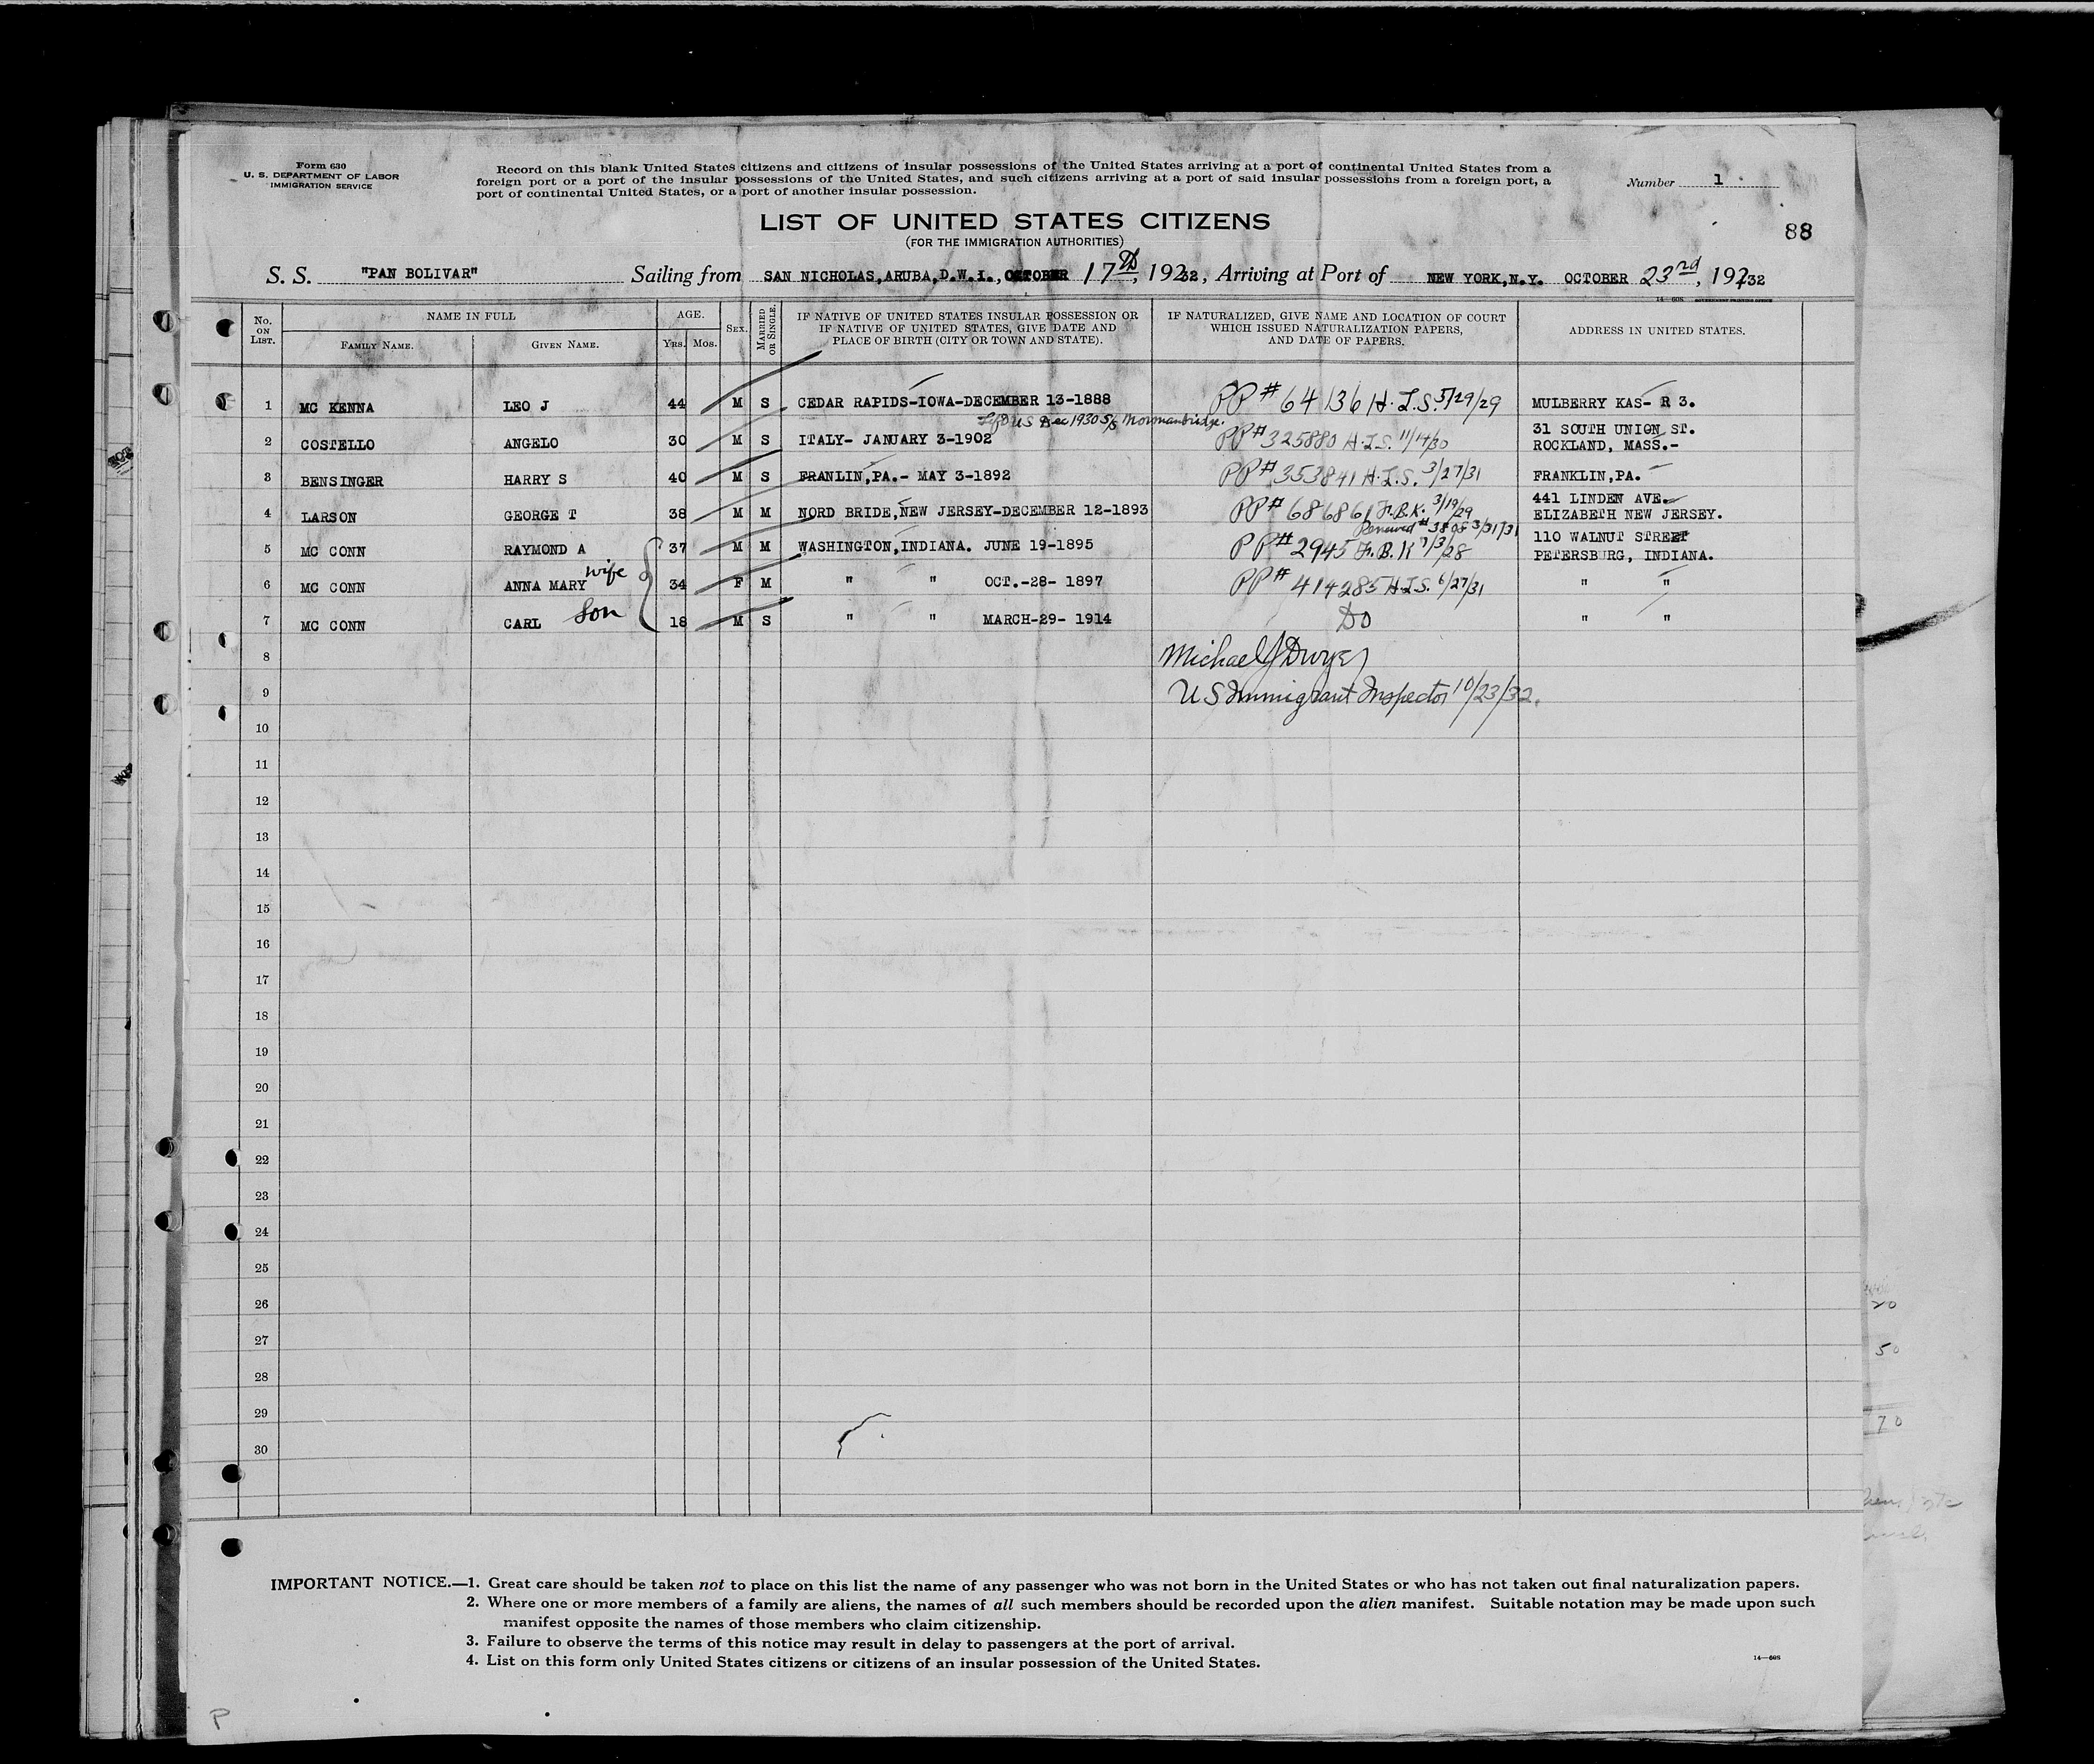 Form 630
U. S. DEPARTMENT OF LABOR
IMMIGRATION SERVICE
Record on this blank United States citizens and citizens of insular possessions of the United States arriving at a port of continental United States from a
foreign port or a port of the insular possessions of the United States, and such citizens arriving at a port of said insular possessions from a foreign port, a
port of continental United States, or a port of another insular possession.
Number 1
LIST OF UNITED STATES CITIZENS
(FOR THE IMMIGRATION AUTHORITIES)
88
S. S. "PAN BOLIVAR" Sailing from SAN NICHOLAS,ARUBA,D.W.I., OCTOBER 17th, 19232, Arriving at Port of NEW YORK,N.Y. OCTOBER 23rd, 19232
14—608 GOVERNMENT PRINTING OFFICE
No. ON LIST. NAME IN FULL FAMILY NAME. GIVEN NAME. AGE. YRS. MOS. SEX. MARRIED OR SINGLE. IF NATIVE OF UNITED STATES INSULAR POSSESSION OR IF NATIVE OF UNITED STATES, GIVE DATE AND PLACE OF BIRTH (CITY OR TOWN AND STATE). IF NATURALIZED, GIVE NAME AND LOCATION OF COURT WHICH ISSUED NATURALIZATION PAPERS, AND DATE OF PAPERS. ADDRESS IN UNITED STATES.
1 MC KENNA LEO J 44 M S CEDAR RAPIDS-IOWA-DECEMBER 13-1888 PP# 64136 H.L.S. 5/29/29 MULBERRY KAS- R 3.
Left US Dec 1930 S/S Normanbridge.
2 COSTELLO ANGELO 30 M S ITALY- JANUARY 3-1902 PP# 325880 H.L.S. 11/14/30 31 SOUTH UNION ST.
ROCKLAND, MASS.-
3 BENSINGER HARRY S 40 M S FRANLIN,PA.- MAY 3-1892 PP# 353841 H.L.S. 3/27/31 FRANKLIN,PA.
4 LARSON GEORGE T 38 M M NORD BRIDE,NEW JERSEY-DECEMBER 12-1893 PP# 686861 Fr.B.K. 3/19/29 441 LINDEN AVE.
ELIZABETH NEW JERSEY.
Renewed # 3808 3/31/31
5 MC CONN RAYMOND A 37 M M WASHINGTON,INDIANA. JUNE 19-1895 PP# 2945 Fr.B.K 7/3/28 110 WALNUT STREET
PETERSBURG, INDIANA.
6 MC CONN ANNA MARY wife 34 F M " " OCT.-28- 1897 PP# 414285 H.L.S. 6/27/31 " "
7 MC CONN CARL Son 18 M S " " MARCH-29- 1914 DO " "
8 Michael J Dwyer
9 US Immigrant Inspector 10/23/32.
10
11
12
13
14
15
16
17
18
19
20
21
22
23
24
25
26
27
28
29
30
20
50
70
IMPORTANT NOTICE.—1. Great care should be taken not to place on this list the name of any passenger who was not born in the United States or who has not taken out final naturalization papers.
2. Where one or more members of a family are aliens, the names of all such members should be recorded upon the alien manifest. Suitable notation may be made upon such
manifest opposite the names of those members who claim citizenship.
3. Failure to observe the terms of this notice may result in delay to passengers at the port of arrival.
4. List on this form only United States citizens or citizens of an insular possession of the United States.
14—608
P